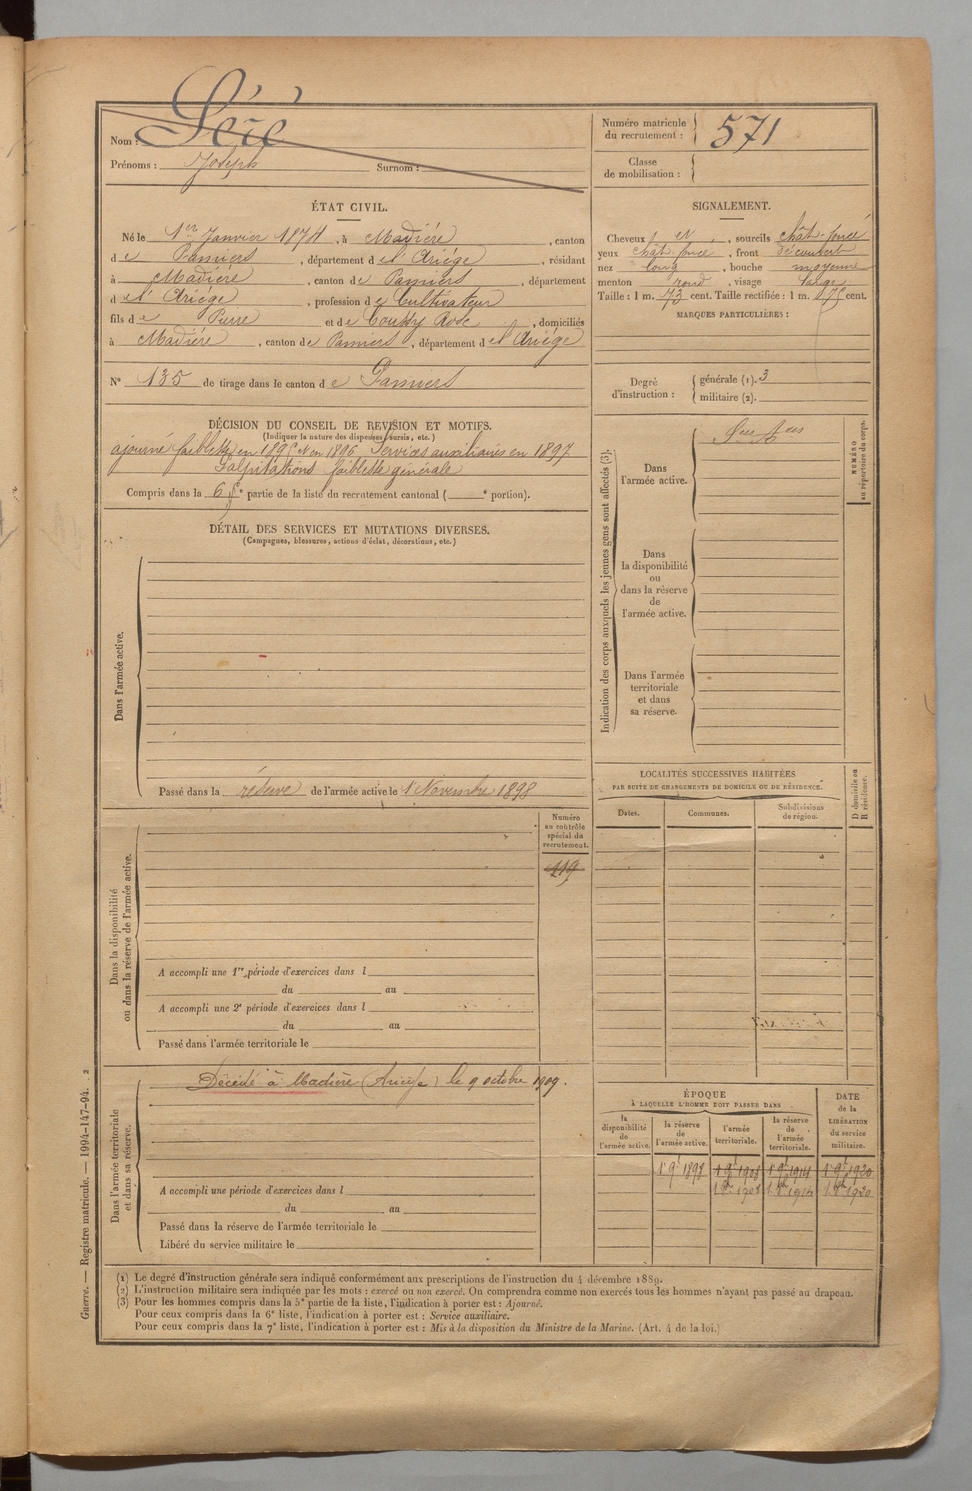 Nom : Séré
Prénoms : Joseph Surnom :
Numéro matricule du recrutement : 571
Classe de mobilisation :
ÉTAT CIVIL.
Né le 1er Janvier 1874, à Madière, canton
de Pamiers, département de l'Ariège, résidant
à Madière, canton de Pamiers, département
de l'Ariège, profession de Cultivateur
fils de Pierre et de Rose, domiciliés
à Madière, canton de Pamiers, département de l'Ariège
N° 135 de tirage dans le canton de Pamiers
SIGNALEMENT.
Cheveux, sourcils chât. foncé
yeux chât. foncé, front découvert
nez long, bouche moyenne
menton rond, visage large
Taille : 1 m. 73 cent. Taille rectifiée : 1 m. cent.
MARQUES PARTICULIÈRES :
Degré d'instruction :
générale (1). 3
militaire (2).
DÉCISION DU CONSEIL DE REVISION ET MOTIFS.
(Indiquer la nature des dispenses, sursis, etc.)
ajourné faiblesse en 1895 et en 1896 Services auxiliaires en 1897
Palpitations faiblesse générale
Compris dans la 6e partie de la liste du recrutement cantonal ( e portion).
DÉTAIL DES SERVICES ET MUTATIONS DIVERSES.
(Campagnes, blessures, actions d'éclat, décorations, etc.)
Dans l'armée active.
Passé dans la réserve de l'armée active le 1er Novembre 1898
Indication des corps auxquels les jeunes gens sont affectés (3).
Dans l'armée active.
NUMÉRO au répertoire du corps.
Dans la disponibilité ou dans la réserve de l'armée active.
Dans l'armée territoriale et dans sa réserve.
LOCALITÉS SUCCESSIVES HABITÉES
PAR SUITE DE CHANGEMENTS DE DOMICILE OU DE RÉSIDENCE.
Dates. Communes. Subdivisions de région.
D domicile ou R résidence.
Dans la disponibilité ou dans la réserve de l'armée active.
Numéro au contrôle spécial du recrutement.
219
A accompli une 1re période d'exercices dans l
du au
A accompli une 2e période d'exercices dans l
du au
Passé dans l'armée territoriale le
Dans l'armée territoriale et dans sa réserve.
Décédé à Madière (Ariège) le 9 octobre 1909.
A accompli une période d'exercices dans l
du au
Passé dans la réserve de l'armée territoriale le
Libéré du service militaire le
ÉPOQUE
À LAQUELLE L'HOMME DOIT PASSER DANS
la disponibilité de l'armée active.
la réserve de l'armée active.
l'armée territoriale.
la réserve de l'armée territoriale.
DATE de la LIBÉRATION du service militaire.
(1) Le degré d'instruction générale sera indiqué conformément aux prescriptions de l'instruction du 4 décembre 1889.
(2) L'instruction militaire sera indiquée par les mots : exercé ou non exercé. On comprendra comme non exercés tous les hommes n'ayant pas passé au drapeau.
(3) Pour les hommes compris dans la 5e partie de la liste, l'indication à porter est : Ajourné.
Pour ceux compris dans la 6e liste, l'indication à porter est : Service auxiliaire.
Pour ceux compris dans la 7e liste, l'indication à porter est : Mis à la disposition du Ministre de la Marine. (Art. 4 de la loi.)
Guerre. — Registre matricule. — 1994-147-94. 2